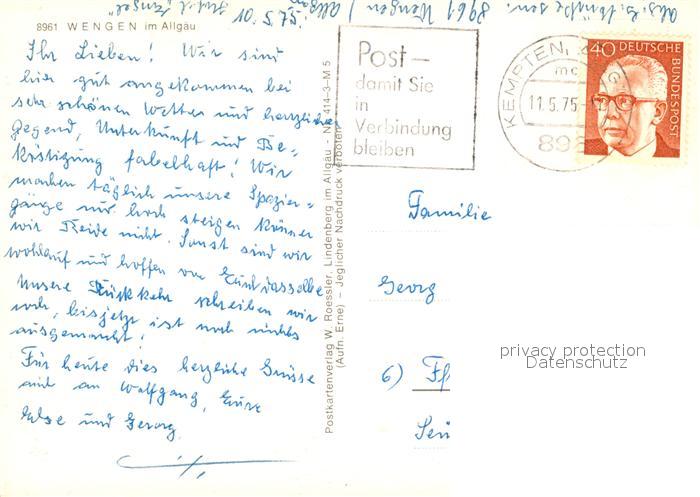 8961 WENGEN im Allgäu
10.5.75.
8961 Wengen / Allgäu
Post –
damit Sie
in
Verbindung
bleiben
KEMPTEN
11.5.75
896
40 DEUTSCHE
BUNDESPOST
Ihr Lieben! Wir sind
hier gut angekommen bei
sehr schönen Wetter und herzlicher
Gegend, Unterkunft und Be=
köstigung fabelhaft! Wir
machen täglich unsere Spazier=
gänge nur hoch steigen können
wir Beide nicht. Sonst sind wir
wohlauf und hoffen von Euch dasselbe
Unsere Rückkehr schreiben wir
noch, bis jetzt ist noch nichts
ausgemacht!
Für heute dies herzliche Grüsse
auch an Wolfgang, Eure
Else und Georg
Postkartenverlag W. Roessler, Lindenberg im Allgäu - Nr. 414-3-M 5
(Aufn. Erne) – Jeglicher Nachdruck verboten
Familie
Georg
6) Ff
privacy protection
Datenschutz